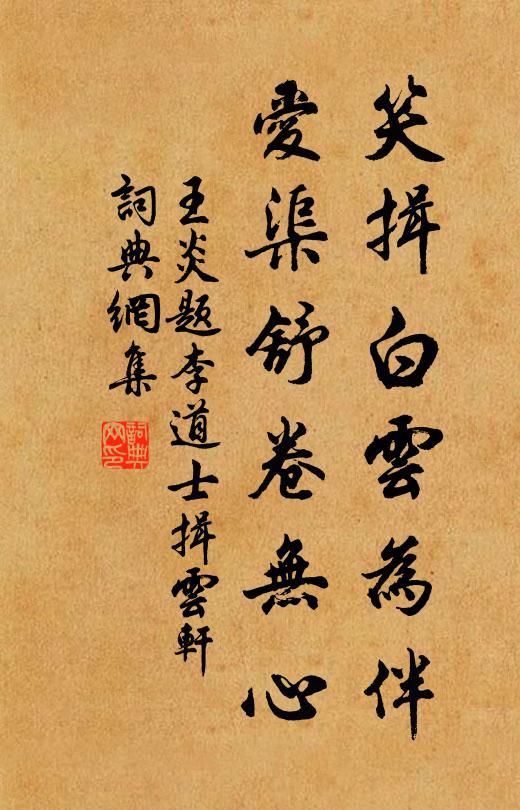 笑揖白雲為伴
愛渠舒卷無心
王炎題李道士揖雲軒
詞典網集
詞典
网印